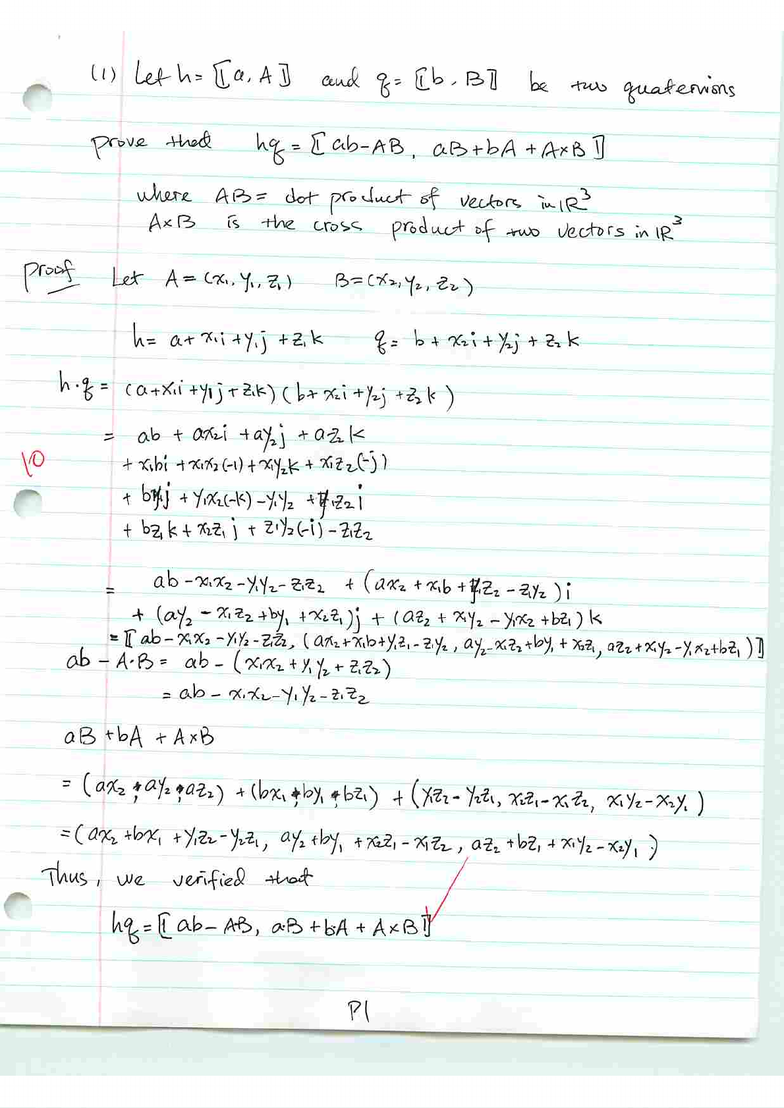 (1) Let h = ⟦a, A⟧ and q = ⟦b, B⟧ be two quaternions
prove that hq = ⟦ab-AB, aB+bA+A×B⟧
where AB = dot product of vectors in ℝ³
A×B is the cross product of two vectors in ℝ³
Proof Let A = (x₁, y₁, z₁) B = (x₂, y₂, z₂)
h = a + x₁i + y₁j + z₁k q = b + x₂i + y₂j + z₂k
h·q = (a+x₁i+y₁j+z₁k)(b+x₂i+y₂j+z₂k)
= ab + ax₂i + ay₂j + az₂k
10 + x₁bi + x₁x₂(-1) + x₁y₂k + x₁z₂(-j)
+ by₁j + y₁x₂(-k) - y₁y₂ + y₁z₂i
+ bz₁k + x₂z₁j + z₁y₂(-i) - z₁z₂
= ab - x₁x₂ - y₁y₂ - z₁z₂ + (ax₂ + x₁b + y₁z₂ - z₁y₂)i
+ (ay₂ - x₁z₂ + by₁ + x₂z₁)j + (az₂ + x₁y₂ - y₁x₂ + bz₁)k
= ⟦ab - x₁x₂ - y₁y₂ - z₁z₂, (ax₂+x₁b+y₁z₂-z₁y₂, ay₂-x₁z₂+by₁+x₂z₁, az₂+x₁y₂-y₁x₂+bz₁)⟧
ab - A·B = ab - (x₁x₂ + y₁y₂ + z₁z₂)
= ab - x₁x₂ - y₁y₂ - z₁z₂
aB + bA + A×B
= (ax₂, ay₂, az₂) + (bx₁, by₁, bz₁) + (y₁z₂ - y₂z₁, x₂z₁ - x₁z₂, x₁y₂ - x₂y₁)
= (ax₂ + bx₁ + y₁z₂ - y₂z₁, ay₂ + by₁ + x₂z₁ - x₁z₂, az₂ + bz₁ + x₁y₂ - x₂y₁)
Thus, we verified that
hq = ⟦ab - AB, aB + bA + A×B⟧
P1